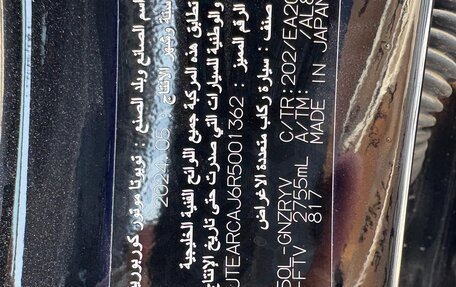 اسم الصانع وبلد الصنع : تويوتا موتور كوربوري
سنة وشهر الانتاج : 2024.05
تطابق هذه المركبة جميع اللوائح الفنية الخليجية
والوطنية للسيارات التي صدرت حتى تاريخ الإنتاج
الرقم المميز : JTEARCAJ6R5001362
صنف : سيارة ركاب متعددة الاغراض
50L-GNZRYV C/TR:202/EA20
-FTV 2755mL A/TM: /AL8
817 MADE IN JAPAN